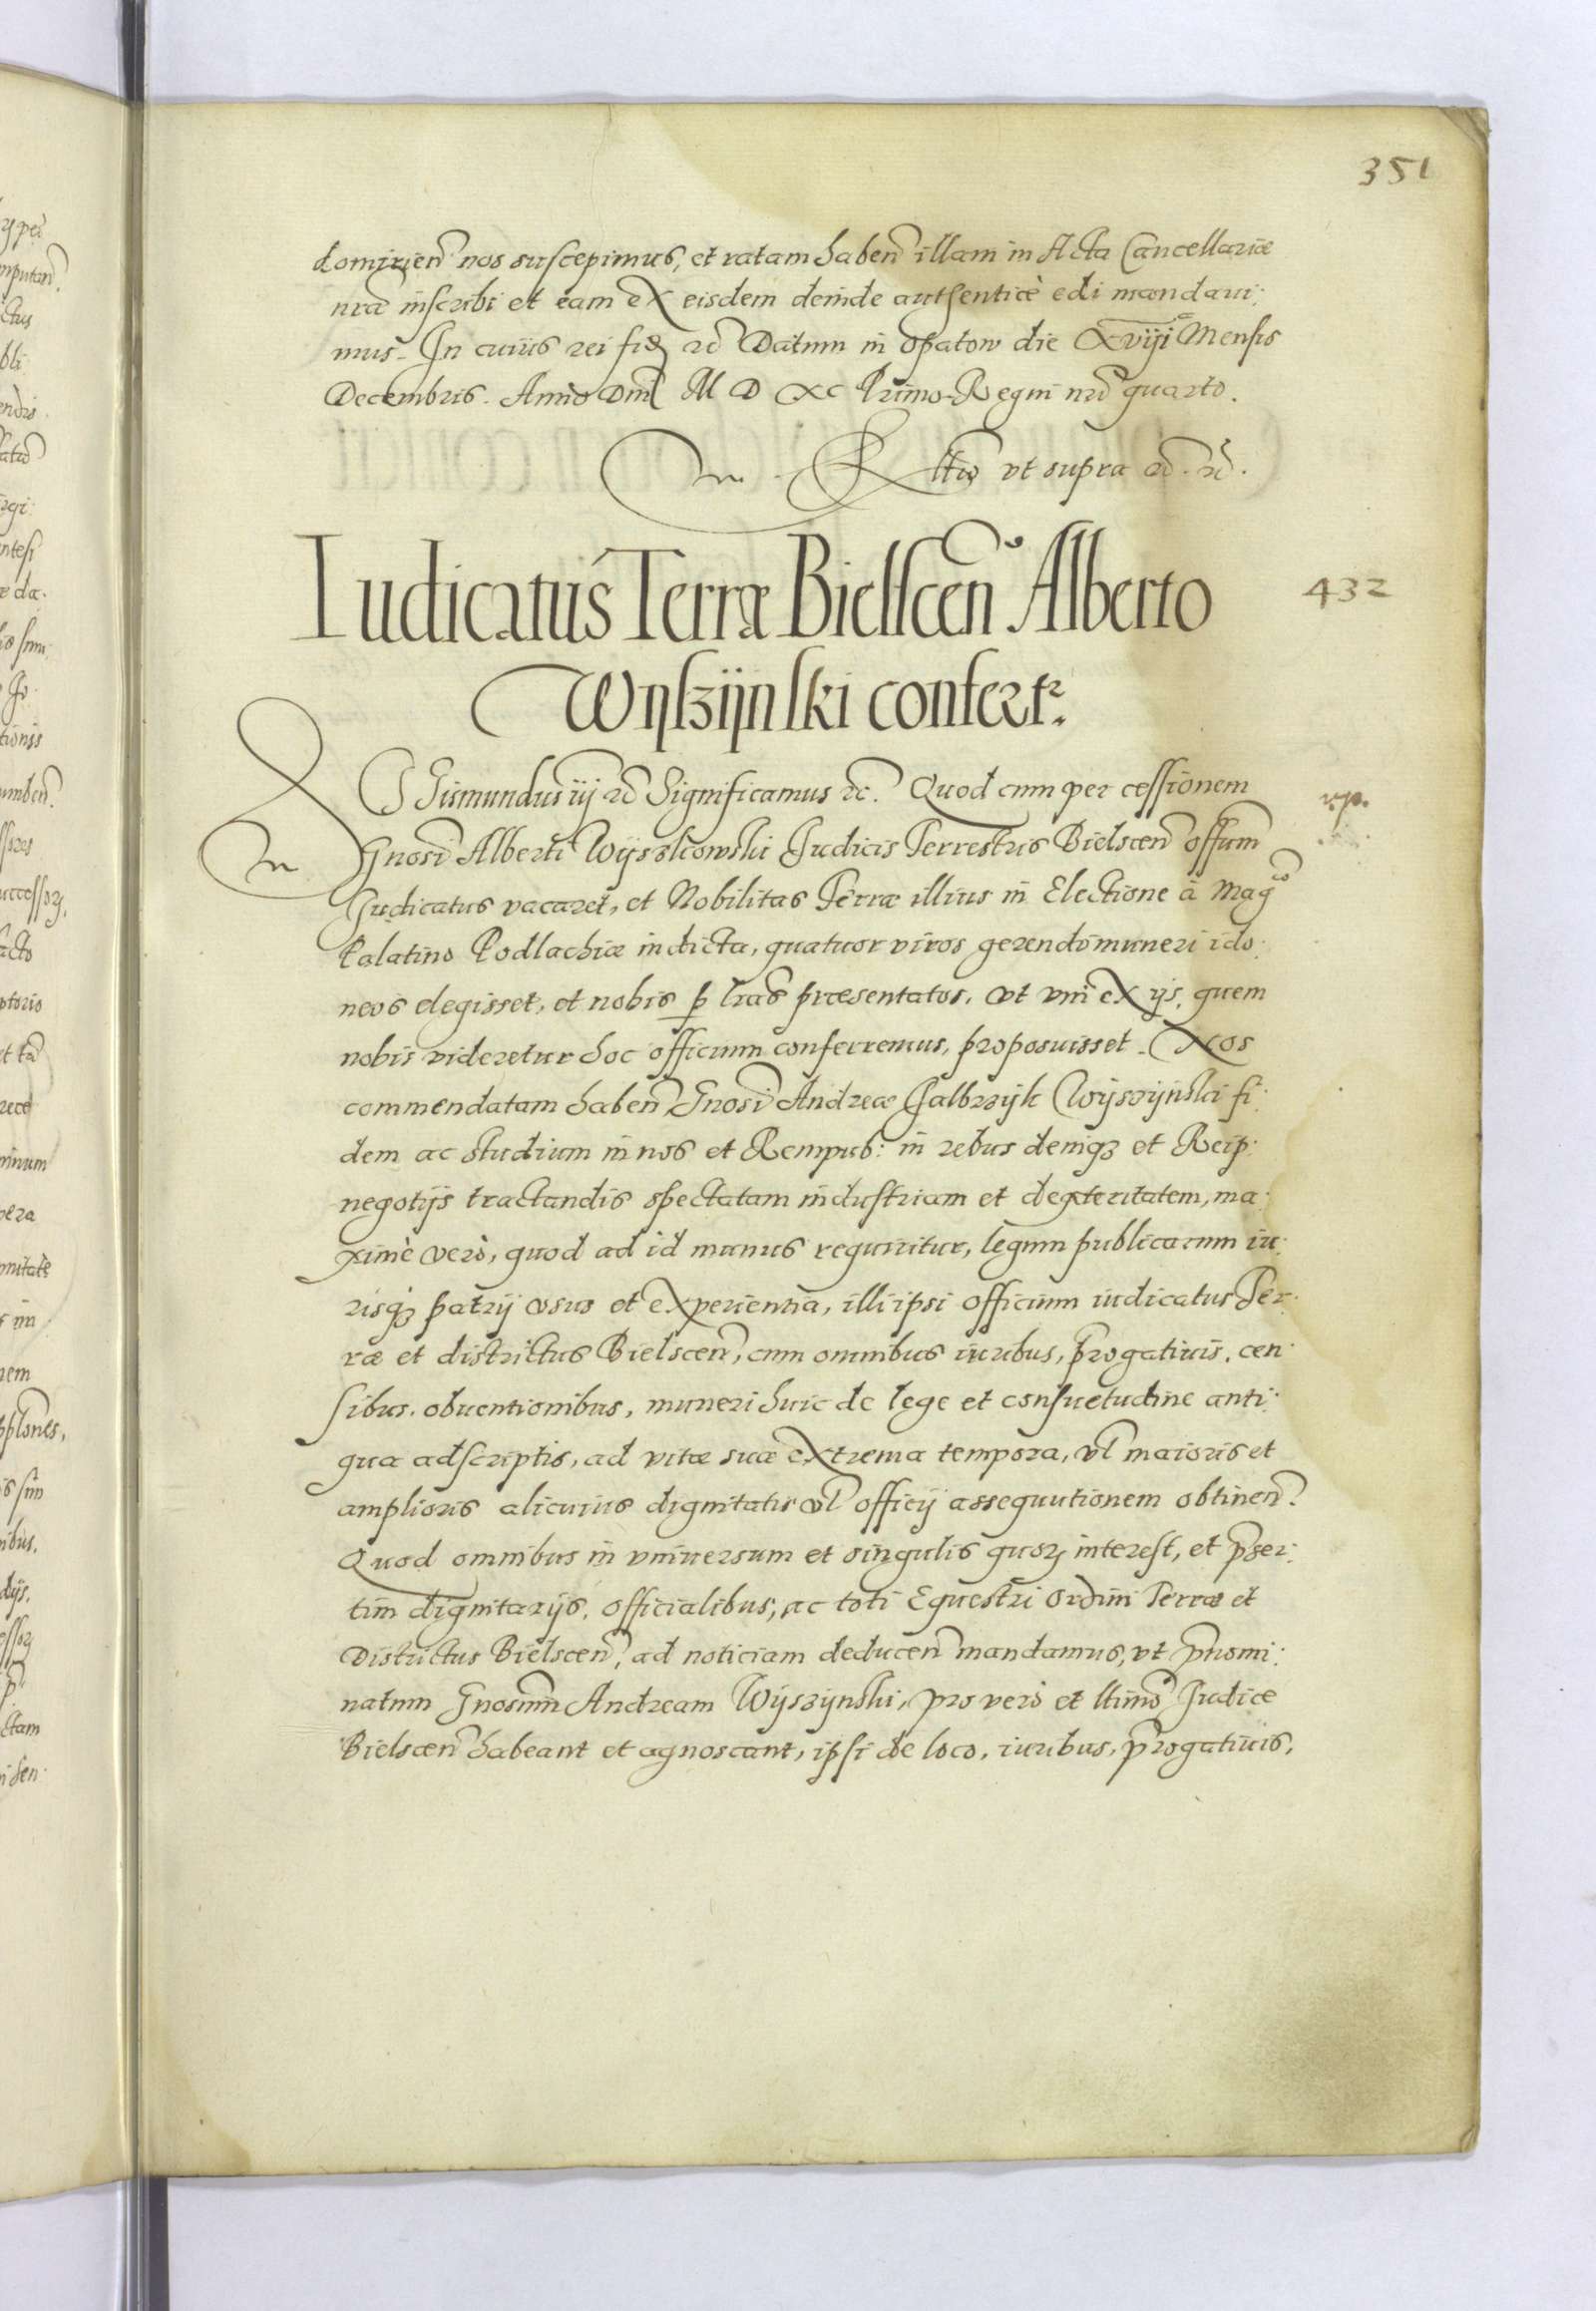 351
domirien̄ nos suscepimus, et ratam haben̄ illam in Acta Cancellariæ
nræ inscribi et eam ex eisdem deinde authenticè edi mandaui:
mus. In cuius rei fid̄ etc̄ Datum in Opatow die xviij Mensis
Decembris. Anno Dni M D XC Primo. Regni nrī quarto.
Rltio vt supra etc̄. etc̄.
Iudicatus Terræ Bielscen̄ Alberto
432
Wÿszÿnski confertr.
Sigismundus iij etc̄ Significamus etc. Quod cum per cessionem
rip.
Gnosi Alberti Wyszkowski Judicis Terrestris Bielscen̄ offium
Judicatus vacaret, et Nobilitas Terræ illius in Electione à Magco
Palatino Podlachiæ indicta, quatuor viros gerendo muneri ido:
neos elegisset, et nobis p lras præsentatos, vt vni ex ijs, quem
nobis videretur hoc officium conferremus, proposuisset. Nos
commendatam haben̄ Gnosi Andreæ Jalbrzyk Wyszynski fi:
dem ac studium in nos et Rempub: in rebus deniq3 et Reip:
negotijs tractandis spectatam industriam et dexteritatem, ma:
ximè verò, quod ad id munus requiritur, legum publicarum iu:
risq3 patrij vsus et experientia, illi ipsi officium iudicatus Ter:
ræ et districtus Bielscen̄, cum omnibus iuribus, progatiuis, cen:
sibus, obuentionibus, muneri huic de lege et consuetudine anti:
qua adscriptis, ad vitæ suæ extrema tempora, vl maioris et
amplioris alicuius dignitatis vl officij assequutionem obtinen̄.
Quod omnibus in vniuersum et singulis quorz interest, et pser:
tim dignitarijs, officialibus, ac toti Equestri Ordini Terræ et
Districtus Bielscen̄, ad noticiam deducen̄ mandamus, vt pnomi:
natum Gnosum Andream Wyszynski, pro vero et ltimo Judice
Bielscen̄ habeant et agnoscant, ipsi de loco, iuribus, progatiuis,